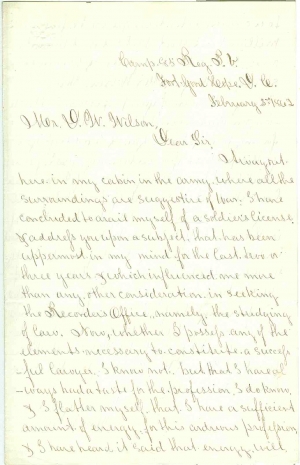 Camp 63 Reg P. V.
Fort Good Hope, V. A.
February 5th 1862
Hon. D. W. Wilson,
Dear Sir,
here in my cabin in the army, where all the
surroundings are suggestive of War, I have
concluded to avail myself of a soldiers license
& address you upon a subject that has been
uppermost in my mind for the last two or
three years & which influenced me more
than any other consideration in seeking
the Recorders Office, namely the studying
of Law. Now, whether I possess any of the
elements necessary to constitute a success
-ful lawyer, I know not, but that I have al
-ways had a taste for the profession, I do know,
& I flatter myself that I have a sufficient
amount of energy for this arduous profession,
& I have heard it said that energy will